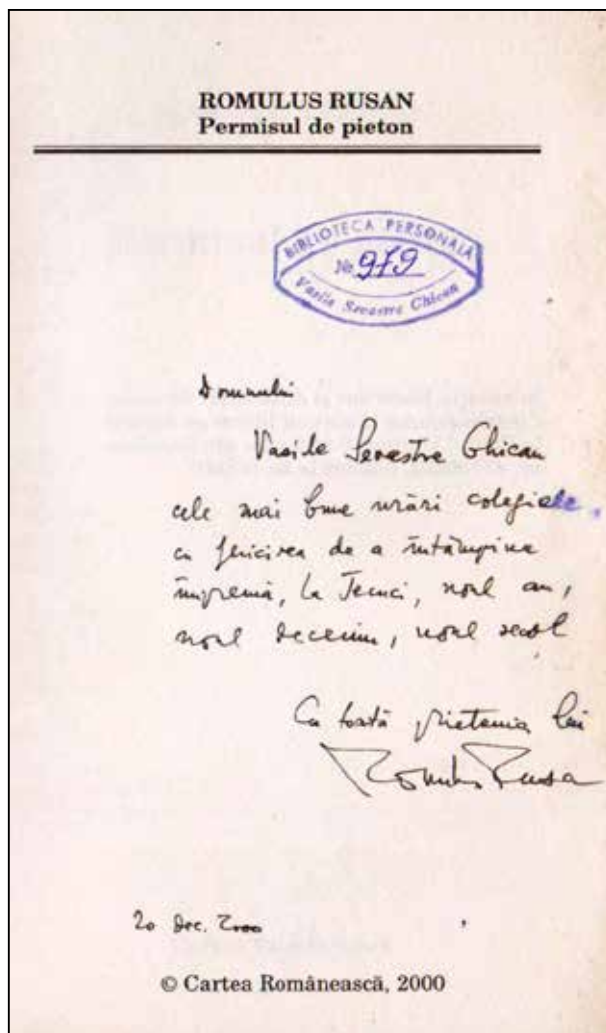 ROMULUS RUSAN
Permisul de pieton
BIBLIOTECA PERSONALĂ
№ 979
Vasile Sevastre Ghican
Domnului
Vasile Sevastre Ghican
cele mai bune urări colegiale,
cu fericirea de a întâmpina
împreună, la Tecuci, noul an,
noul deceniu, noul secol
Cu toată prietenia lui
Romulus Rusan
20 Dec. 2000
© Cartea Românească, 2000